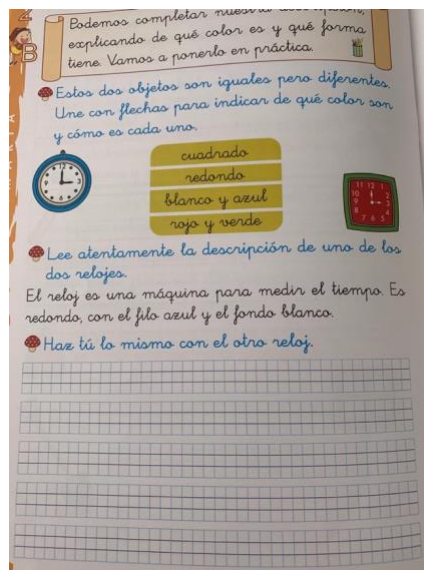 2
B
Podemos completar nuestra
explicando de qué color es y qué forma
tiene. Vamos a ponerlo en práctica.
Estos dos objetos son iguales pero diferentes.
Une con flechas para indicar de qué color son
y cómo es cada uno.
cuadrado
redondo
blanco y azul
rojo y verde
Lee atentamente la descripción de uno de los
dos relojes.
El reloj es una máquina para medir el tiempo. Es
redondo, con el filo azul y el fondo blanco.
Haz tú lo mismo con el otro reloj.